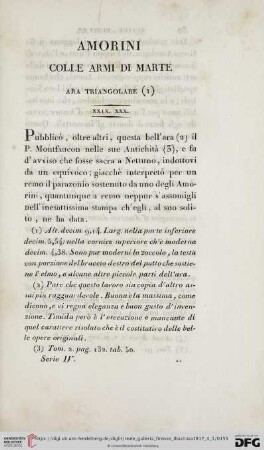 AMORINI
COLLE ARMI DI MARTE
ARA TRIANGOLARE (1)
XXIX. XXX.
Pubblicò, oltre altri, questa bell'ara (2) il
P. Montfaucon nelle sue Antichità (3), e fu
d'avviso che fosse sacra a Netuno, indottovi
da un equivoco; giacchè interpretò per un
remo il parazonio sostenuto da uno degli Amo-
rini, quantunque a remo neppur s'assomigli
nell'incisattissima stampa ch'egli, al suo soli-
to, ne ha data.
(1) Alt. decim 9,14. Larg. nella parte inferiore
decim. 5,54; nella cornice superiore ch'è moderna
decim. 4,38. Sono pur moderni lo zoccolo, la testa
con porzione del braccio destro del putto che sostie-
ne l'elmo, e alcune altre piccole parti dell'ara.
(2) Pare che questo lavoro sia copia d'altro as-
sai più ragguardevole. Buona è la massima, come
dicono, e vi regna eleganza e buon gusto d'inven-
zione. Timida però è l'esecuzione e mancante di
quel carattere risoluto che è il costitutivo delle bel-
le opere originali.
(3) Tom. 2. pag. 132. tab. 50.
Serie IV.
UNIVERSITÄTS-
BIBLIOTHEK
HEIDELBERG